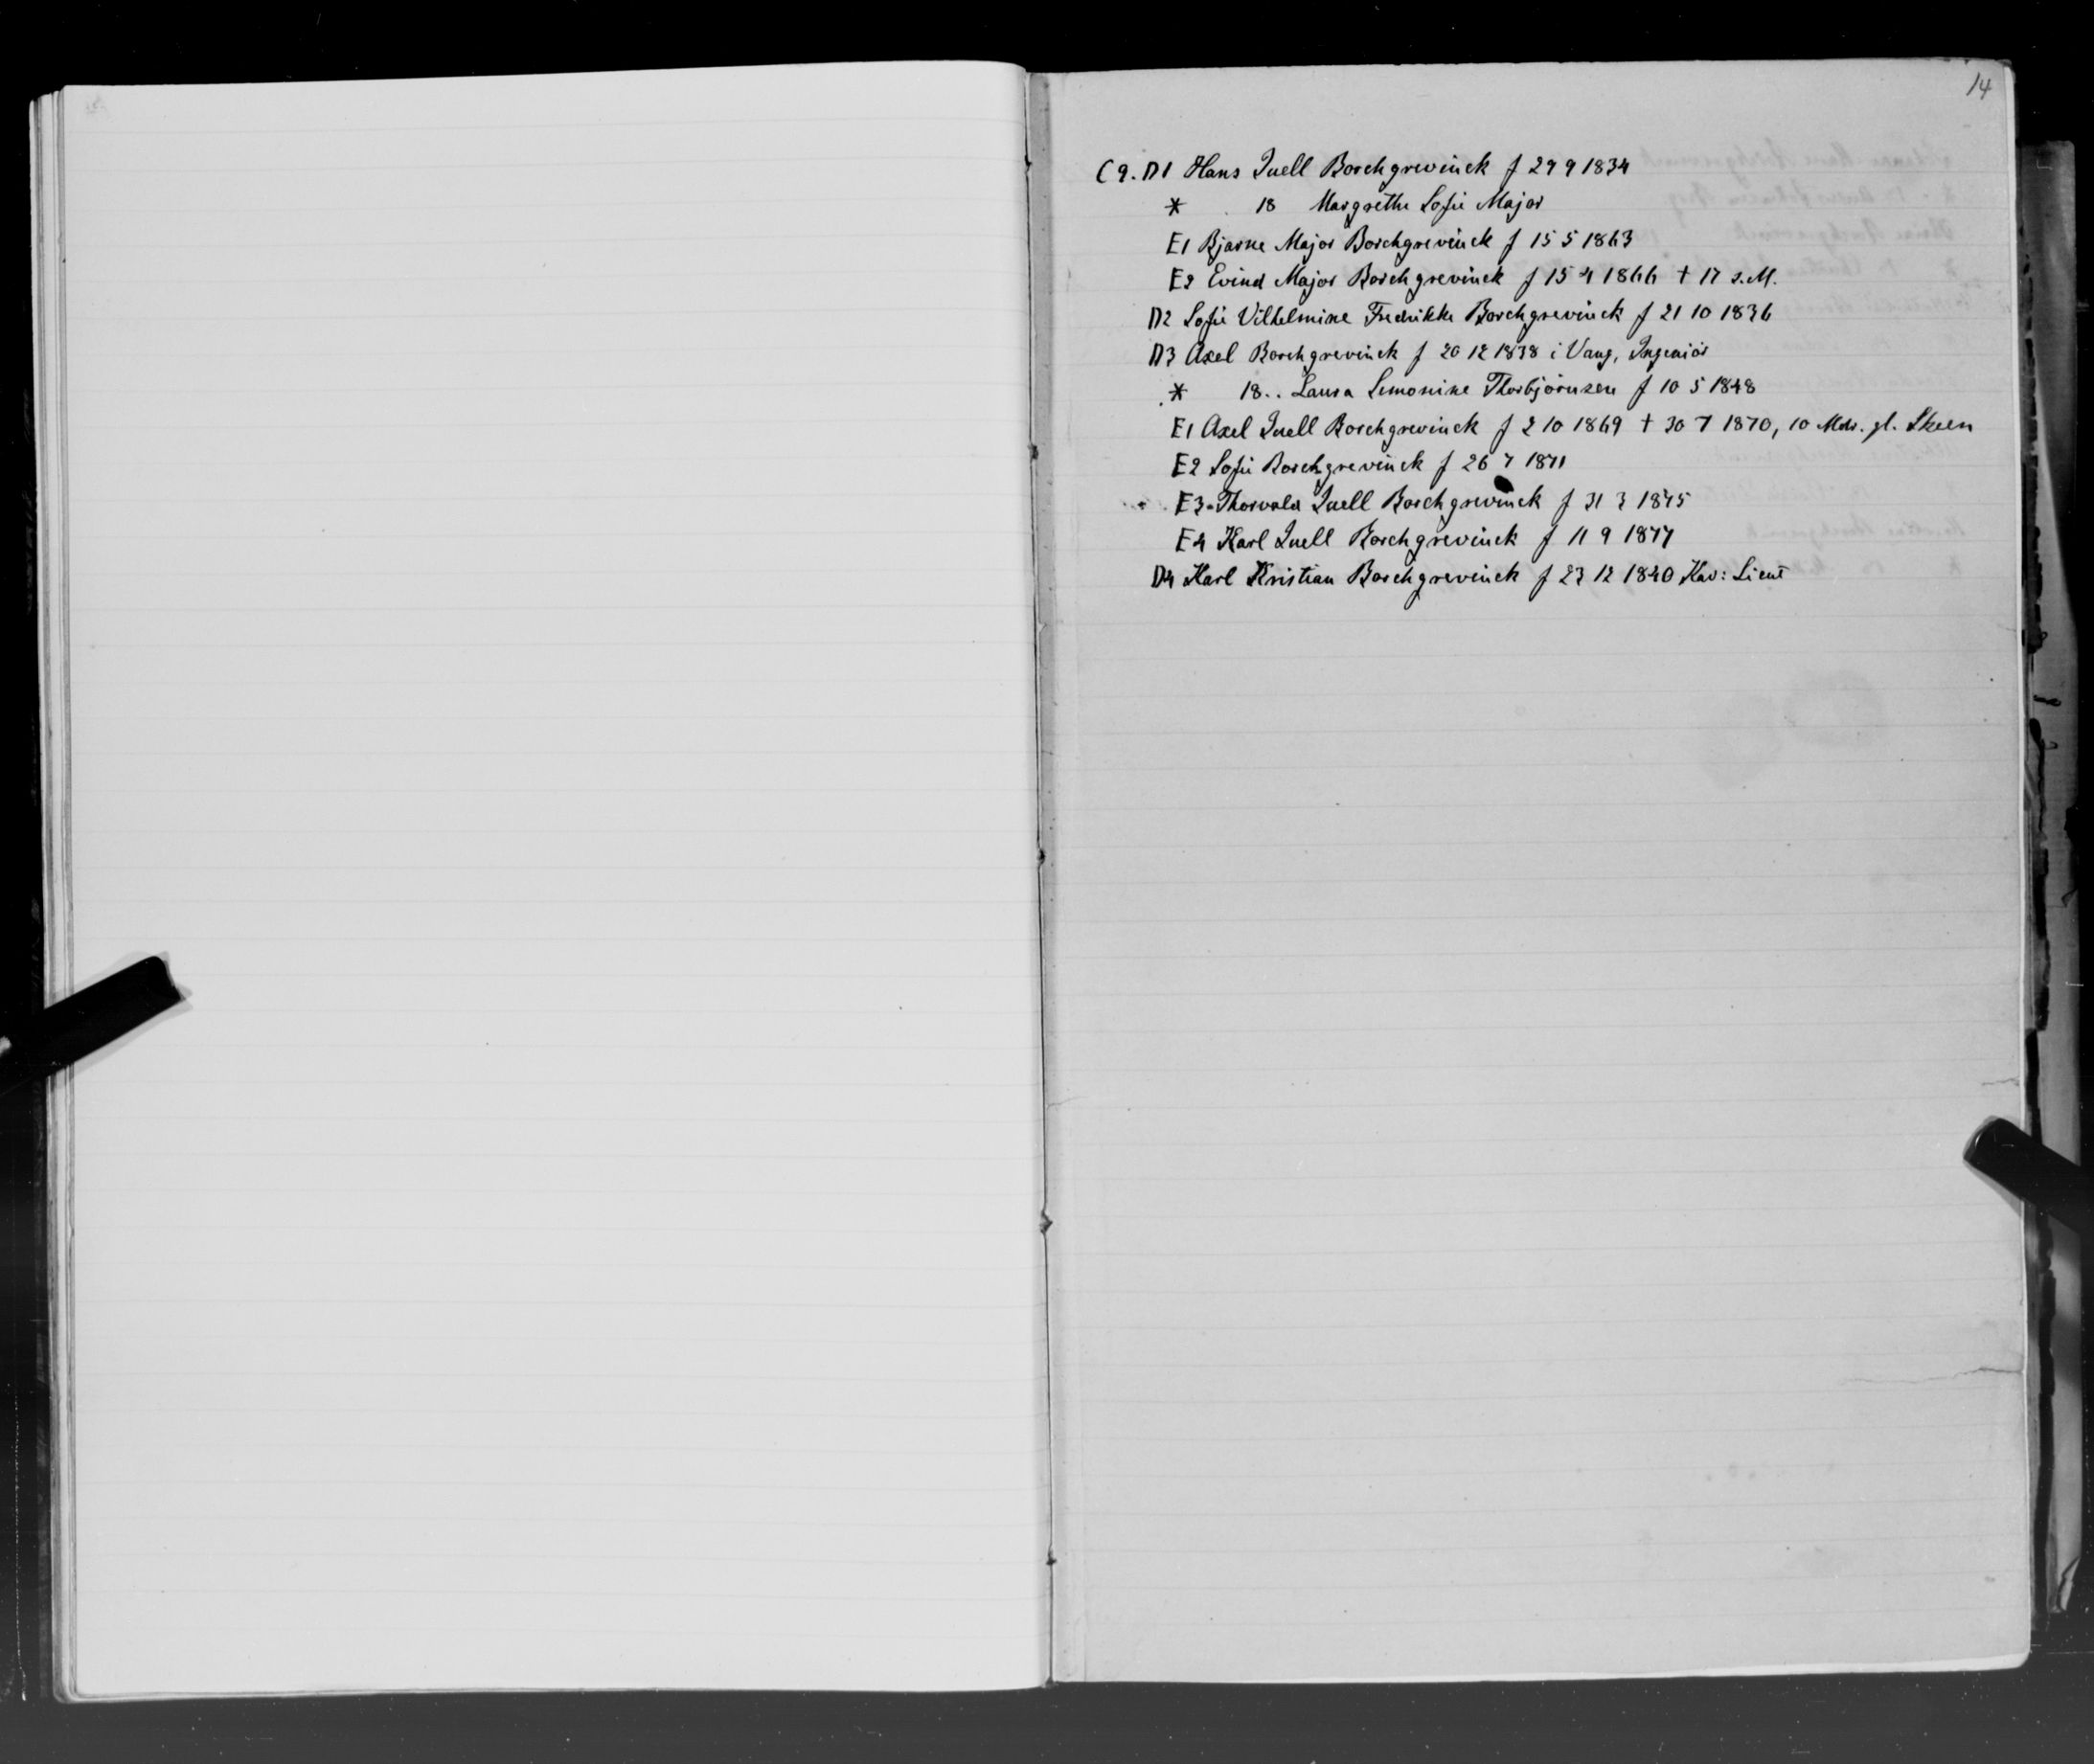 14
C9. D1 Hans Juell Borchgrevinck f 29 9 1834
* 18 Margrethe Sofie Major
E1 Bjarne Major Borchgrevinck f 15 5 1863
E2 Evind Major Borchgrevinck f 15 4 1866 † 17 s.M.
D2 Sofie Vilhelmine Fredrikke Borchgrevinck f 21 10 1836
D3 Axel Borchgrevinck f 20 12 1838 i Vang, Ingeniör
* 18.. Laura Semonine Thorbjörnsen f 10 5 1848
E1 Axel Juell Borchgrevinck f 2 10 1869 † 30 7 1870, 10 Mdr. gl. Skeen
E2 Sofie Borchgrevinck f 26 7 1871
E3 Thorvald Juell Borchgrevinck f 31 3 1875
E4 Karl Juell Borchgrevinck f 11 9 1877
D4 Karl Kristian Borchgrevinck f 23 12 1840 Kav: Lieut